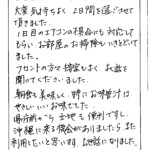 大変気持ちよく2日間を過ごさせて
頂きました。
1日目のエアコンの不具合にも対応して
もらい お部屋のお掃除もいきとどいて
ました。
フロントの方々 接客もよく お話を
聞いてくださいました。
朝食も美味しく 特にお味噌汁は
やさしい いいお味でした。
場所的にも 便利ですし
沖縄に来る機会がありましたら また
利用したいと思います。お世話になりました。